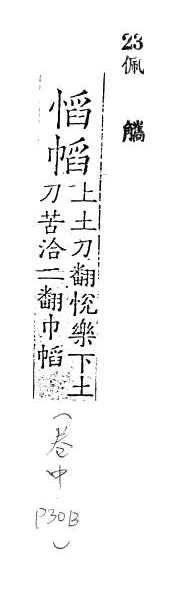 23
佩觿
慆幍
上土刀翻悅樂下土
刀苦洽二翻巾幍
(卷中
P30B
)